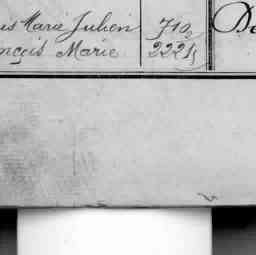 us Marie Julien 710
nçois Marie 2221
De